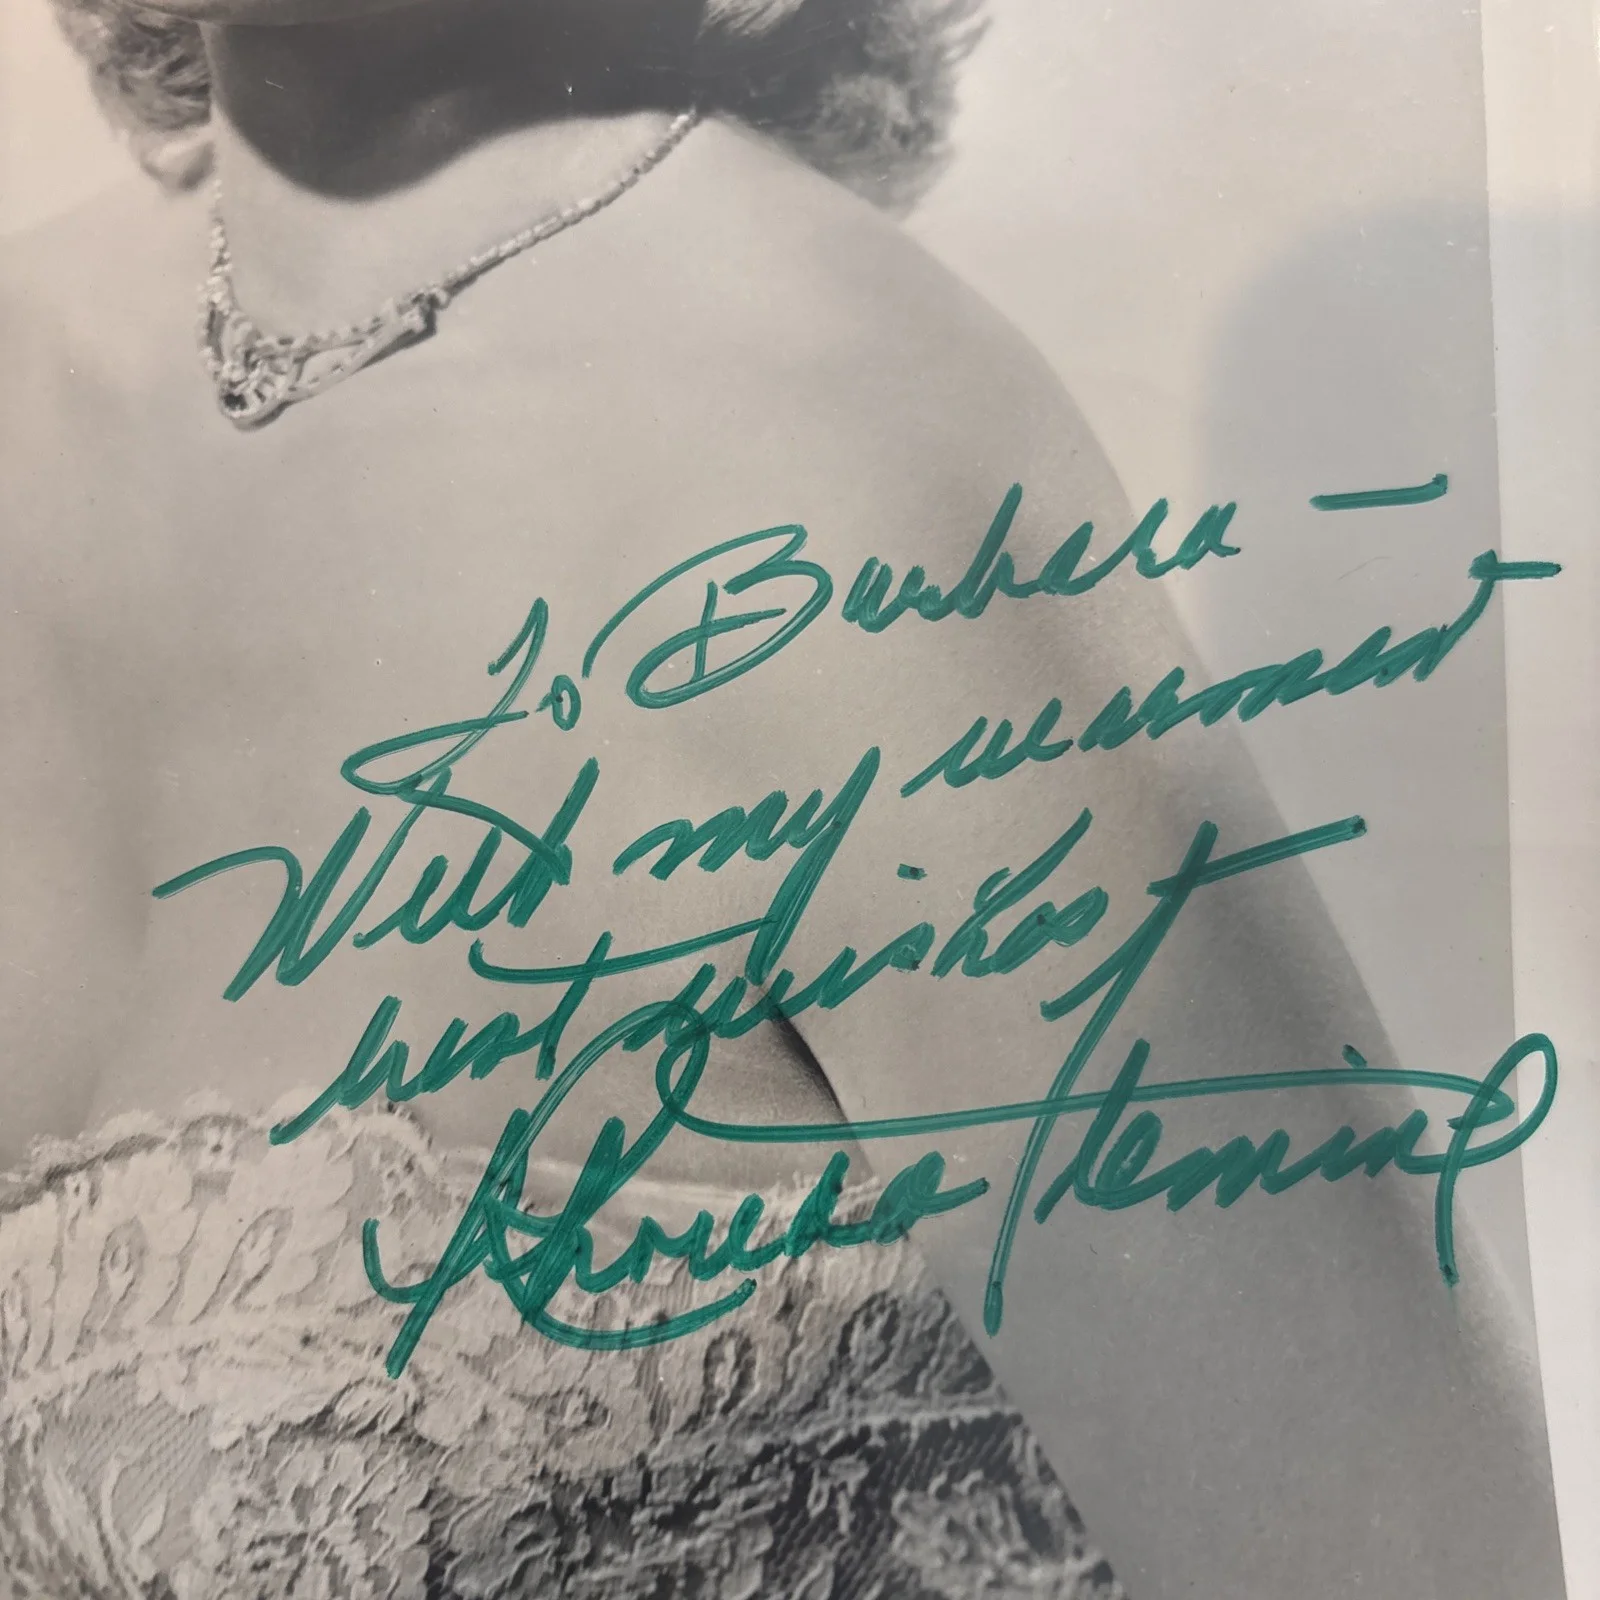 To Barbara —
With my warmest
best wishes
Rhonda Fleming